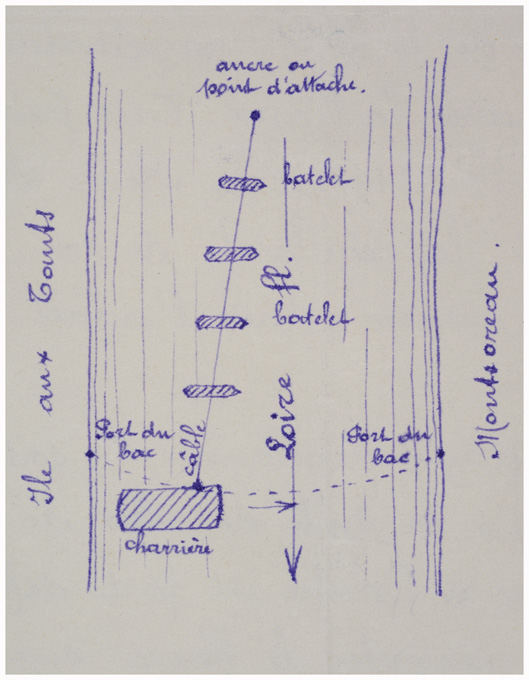 ancre ou
point d'attache.
batelet
fl.
batelet
Loire
câble
Port du
bac
Port du
bac
charrière
Ile aux
Montsoreau.